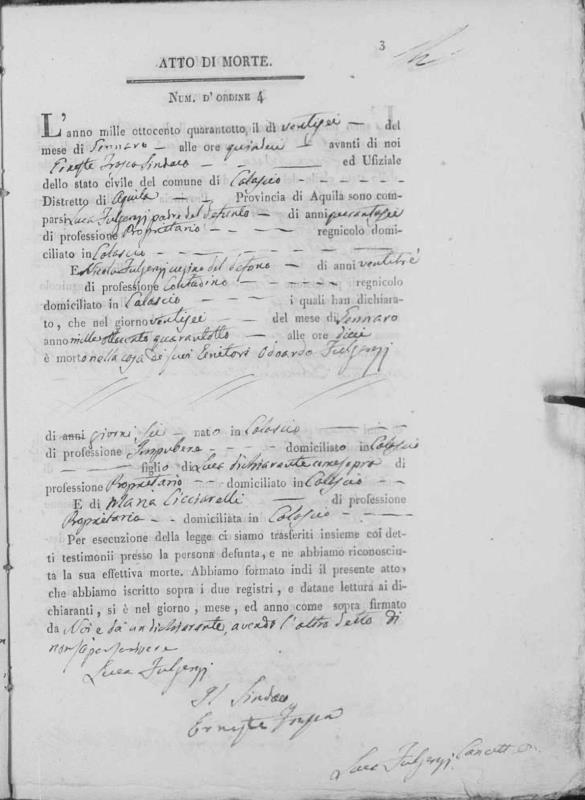 3
ATTO DI MORTE.
NUM. D'ORDINE 4
L'anno mille ottocento quarantotto, il dì ventisei del
mese di Gennaro alle ore quindeci avanti di noi
Sindaco ed Ufiziale
dello stato civile del comune di Calascio
Distretto di Aquila Provincia di Aquila sono com-
parsi Luca Fulgenzi padre del defunto di anni
di professione Proprietario regnicolo domi-
ciliato in Calascio
E Nicola Fulgenzi cugino del defono di anni ventitré
di professione Contadino regnicolo
domiciliato in Calascio i quali han dichiara-
to, che nel giorno ventisei del mese di Gennaro
anno mille ottocento quarantotto alle ore dieci
è morto nella casa de suoi Genitori Odoardo Fulgenzi
di anni giorni sei nato in Calascio
di professione Impubere domiciliato in Calascio
figlio di Luca dichiarante come sopra di
professione Proprietario domiciliato in Calascio
E di Maria Cicciarelli di professione
Proprietaria domiciliata in Calascio
Per esecuzione della legge ci siamo trasferiti insieme coi det-
ti testimonii presso la persona defunta, e ne abbiamo riconosciu-
ta la sua effettiva morte. Abbiamo formato indi il presente atto,
che abbiamo iscritto sopra i due registri, e datane lettura ai di-
chiaranti, si è nel giorno, mese, ed anno come sopra firmato
da Noi e da un dichiarante, avendo l'altro detto di
non saper scrivere
Luca Fulgenzi
Il Sindaco
Ernesto
Luca Fulgenzi